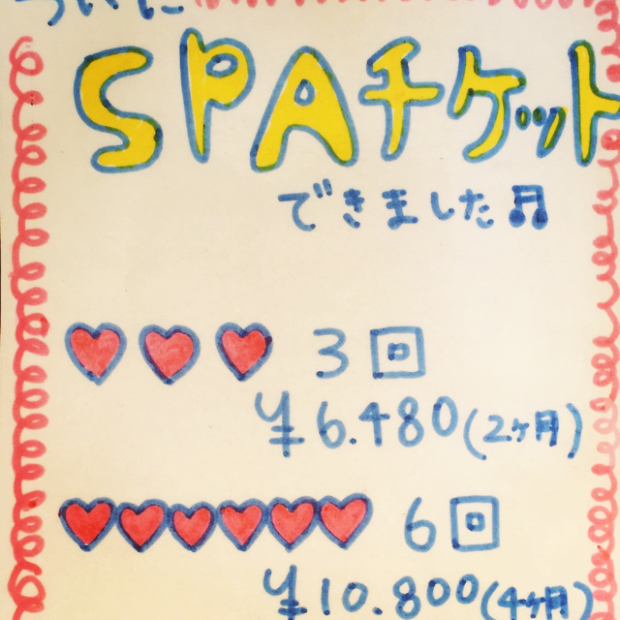 ついに
SPAチケット
できました♫
3回
¥6.480(2ヶ月)
6回
¥10.800(4ヶ月)